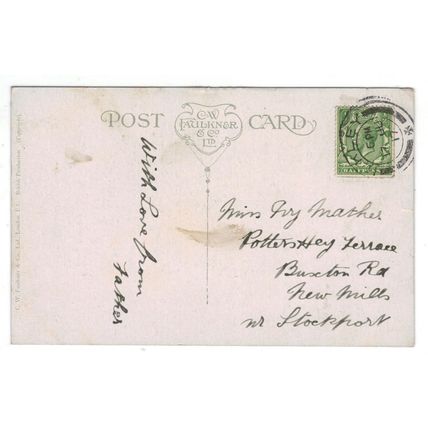 POST CARD
C.W.
FAULKNER
& Co
LTD
With Love from
Father
Miss Ivy Mather
Potters Hey Terrace
Buxton Rd
New Mills
nr Stockport
C. W. Faulkner & Co., Ltd., London, E.C. British Production.